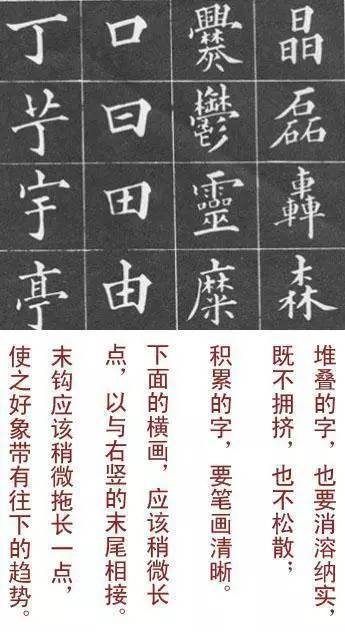 晶磊轟森
爨鬱靈糜
口曰田由
丁
宇亭
堆叠的字，也要消溶纳实，
既不拥挤，也不松散；
积累的字，要笔画清晰。
下面的横画，应该稍微长
点，以与右竖的末尾相接。
末钩应该稍微拖长一点，
使之好象带有往下的趋势。